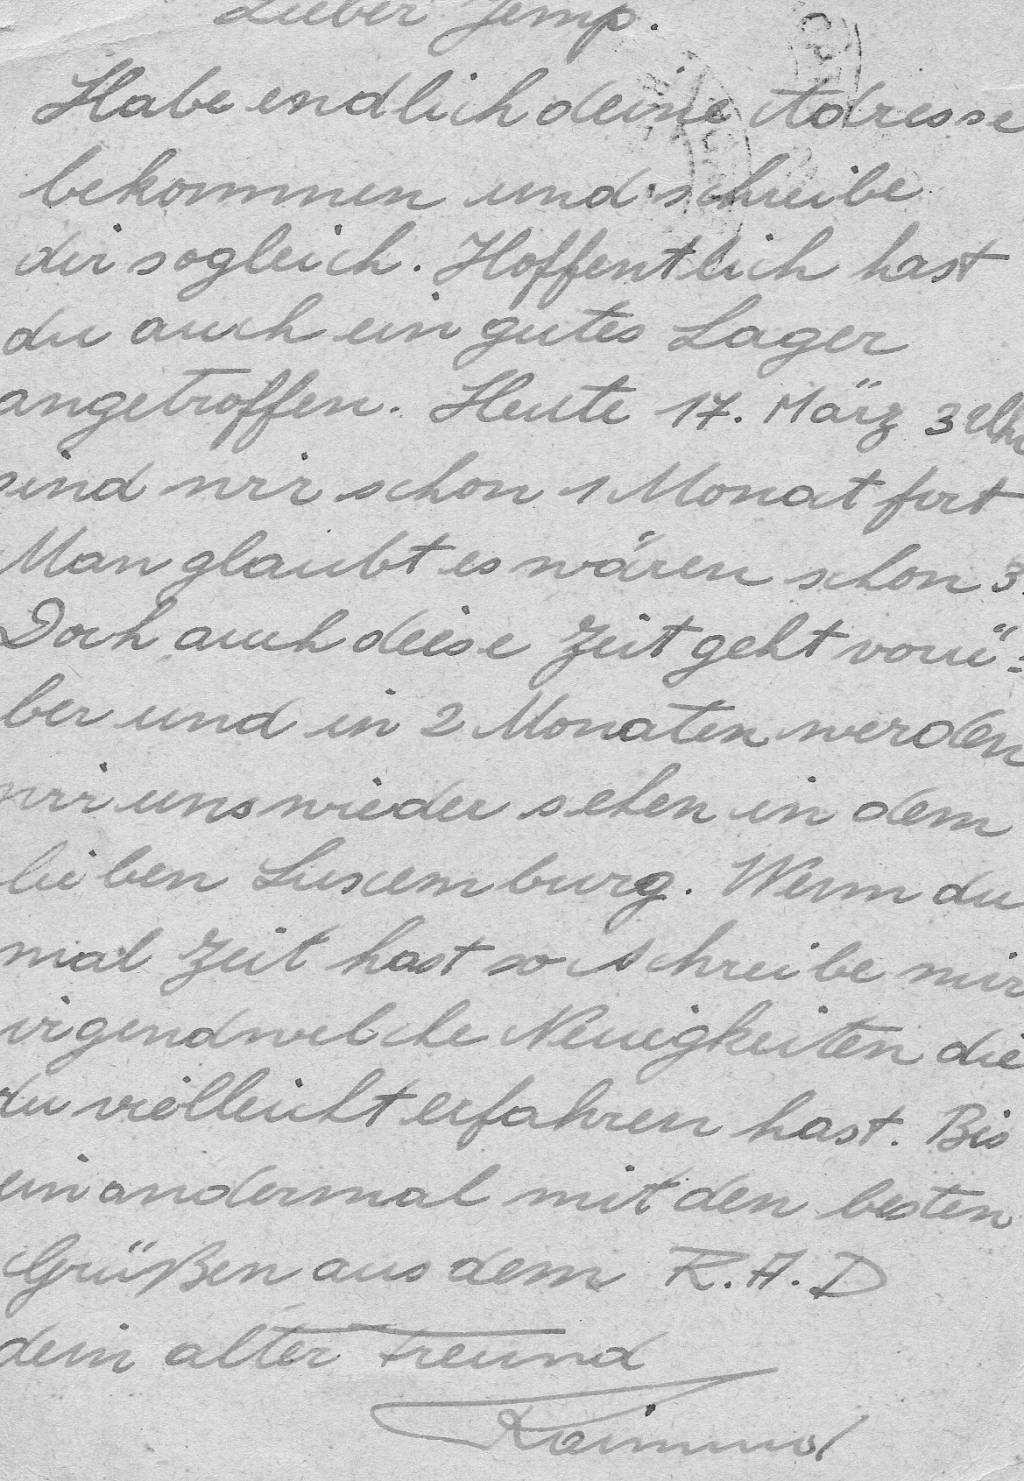 Lieber Jemp.
Habe endlich deine Adresse
bekommen und schreibe
dir sogleich. Hoffentlich hast
du auch ein gutes Lager
angetroffen. Heute 17. März 3 Uhr
sind wir schon 1 Monat fort
Man glaubt es wären schon 3.
Doch auch diese Zeit geht vorü=
ber und in 2 Monaten werden
wir uns wieder sehen in dem
lieben Luxemburg. Wenn du
mal Zeit hast so schreibe mir
irgendwelche Neuigkeiten die
du vielleicht erfahren hast. Bis
ein andermal mit den besten
Grüßen aus dem R.A.D
dein alter Freund
Raimund